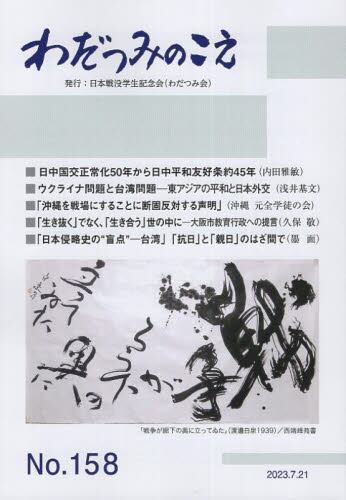 わだつみのこえ
発行：日本戦没学生記念会（わだつみ会）
■日中国交正常化50年から日中平和友好条約45年（内田雅敏）
■ウクライナ問題と台湾問題―東アジアの平和と日本外交（浅井基文）
■「沖縄を戦場にすることに断固反対する声明」（沖縄 元全学徒の会）
■「生き抜く」でなく、「生き合う」世の中に―大阪市教育行政への提言（久保 敬）
■「日本侵略史の“盲点”―台湾」「抗日」と「親日」のはざ間で（墨 面）
戦争が
うろうか
の奥に
立って
ゐた
「戦争が廊下の奥に立ってゐた」（渡邊白泉1939）／西端峰苑書
No.158
2023.7.21